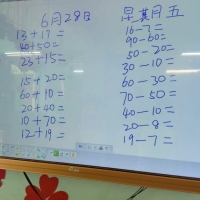 6月28日
13+17=
40+50=
23+15=
15+20=
60+10=
20+40=
10+70=
12+19=
星期五
16-7=
90-60=
50-20=
30-10=
60-30=
70-50=
40-10=
20-8=
19-7=